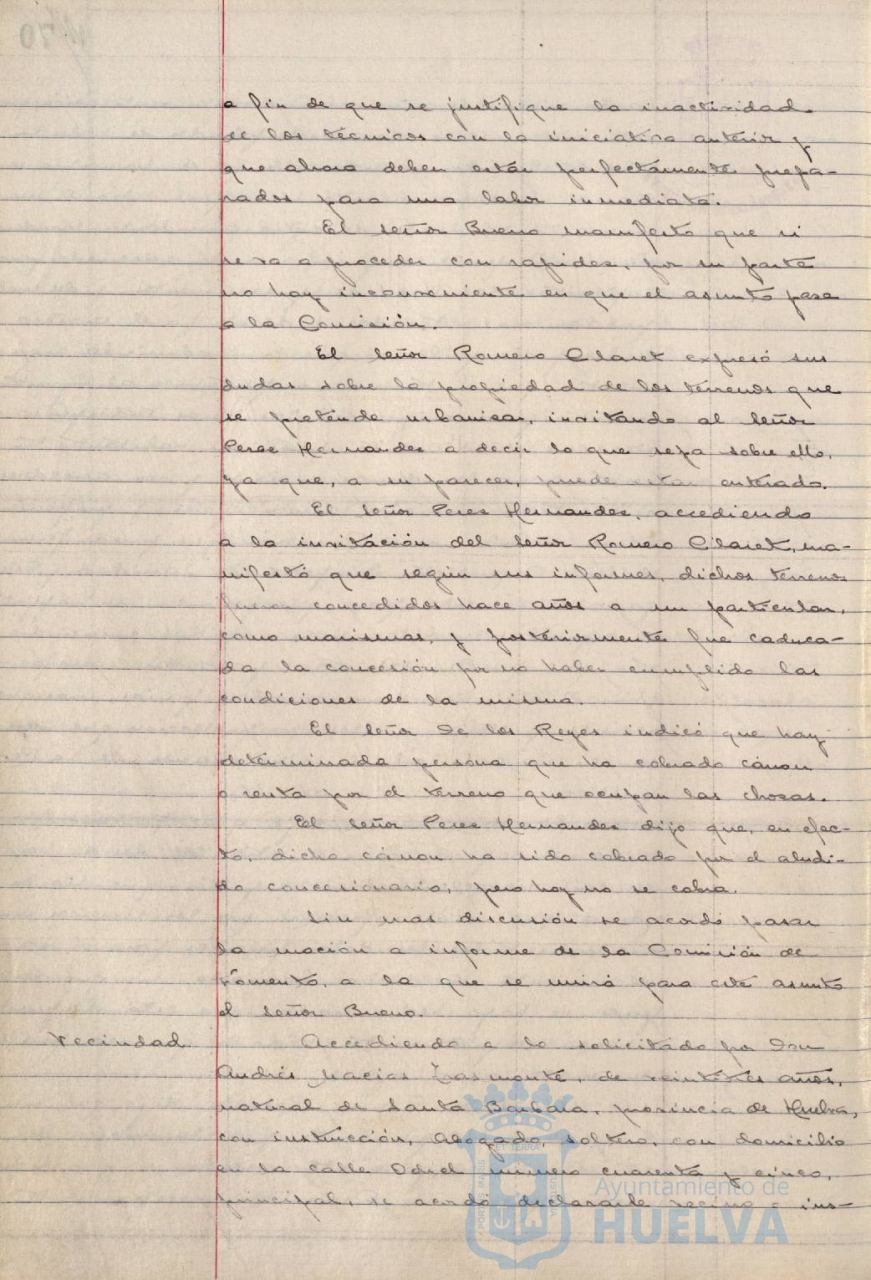 a fin de que se justifique la inactividad
de los técnicos con la iniciativa anterior y
que ahora deben estar perfectamente prepa-
rados para una labor inmediata.
El señor Bueno manifestó que si
se va a proceder con rapidez, por su parte
no hay inconveniente en que el asunto pase
a la Comisión.
El señor Romero Claret expresó sus
dudas sobre la propiedad de los terrenos que
se pretende urbanizar, invitando al señor
Perez Hernandez a decir lo que sepa sobre ello,
ya que, a su parecer, puede estar enterado.
El señor Perez Hernandez, accediendo
a la invitación del señor Romero Claret, ma-
nifestó que según sus informes, dichos terrenos
fueron concedidos hace años a un particular,
como marismas, y posteriormente fue caduca-
da la concesión por no haber cumplido las
condiciones de la misma.
El señor De los Reyes indicó que hay
determinada persona que ha cobrado cánon
o renta por el terreno que ocupan las chozas.
El señor Perez Hernandez dijo que, en efec-
to, dicho cánon ha sido cobrado por el aludi-
do concesionario, pero hoy no se cobra.
Sin mas discusión se acordó pasar
la moción a informe de la Comisión de
Fomento, a la que se unirá para este asunto
el señor Bueno.
Vecindad Accediendo a lo solicitado por Don
Andrés Macias, de veintitres años,
natural de Santa Barbara, provincia de Huelva,
con instrucción, Abogado, soltero, con domicilio
en la calle Odiel número cuarenta y cinco,
principal, se acordó declararle vecino e ins-
Ayuntamiento de
HUELVA